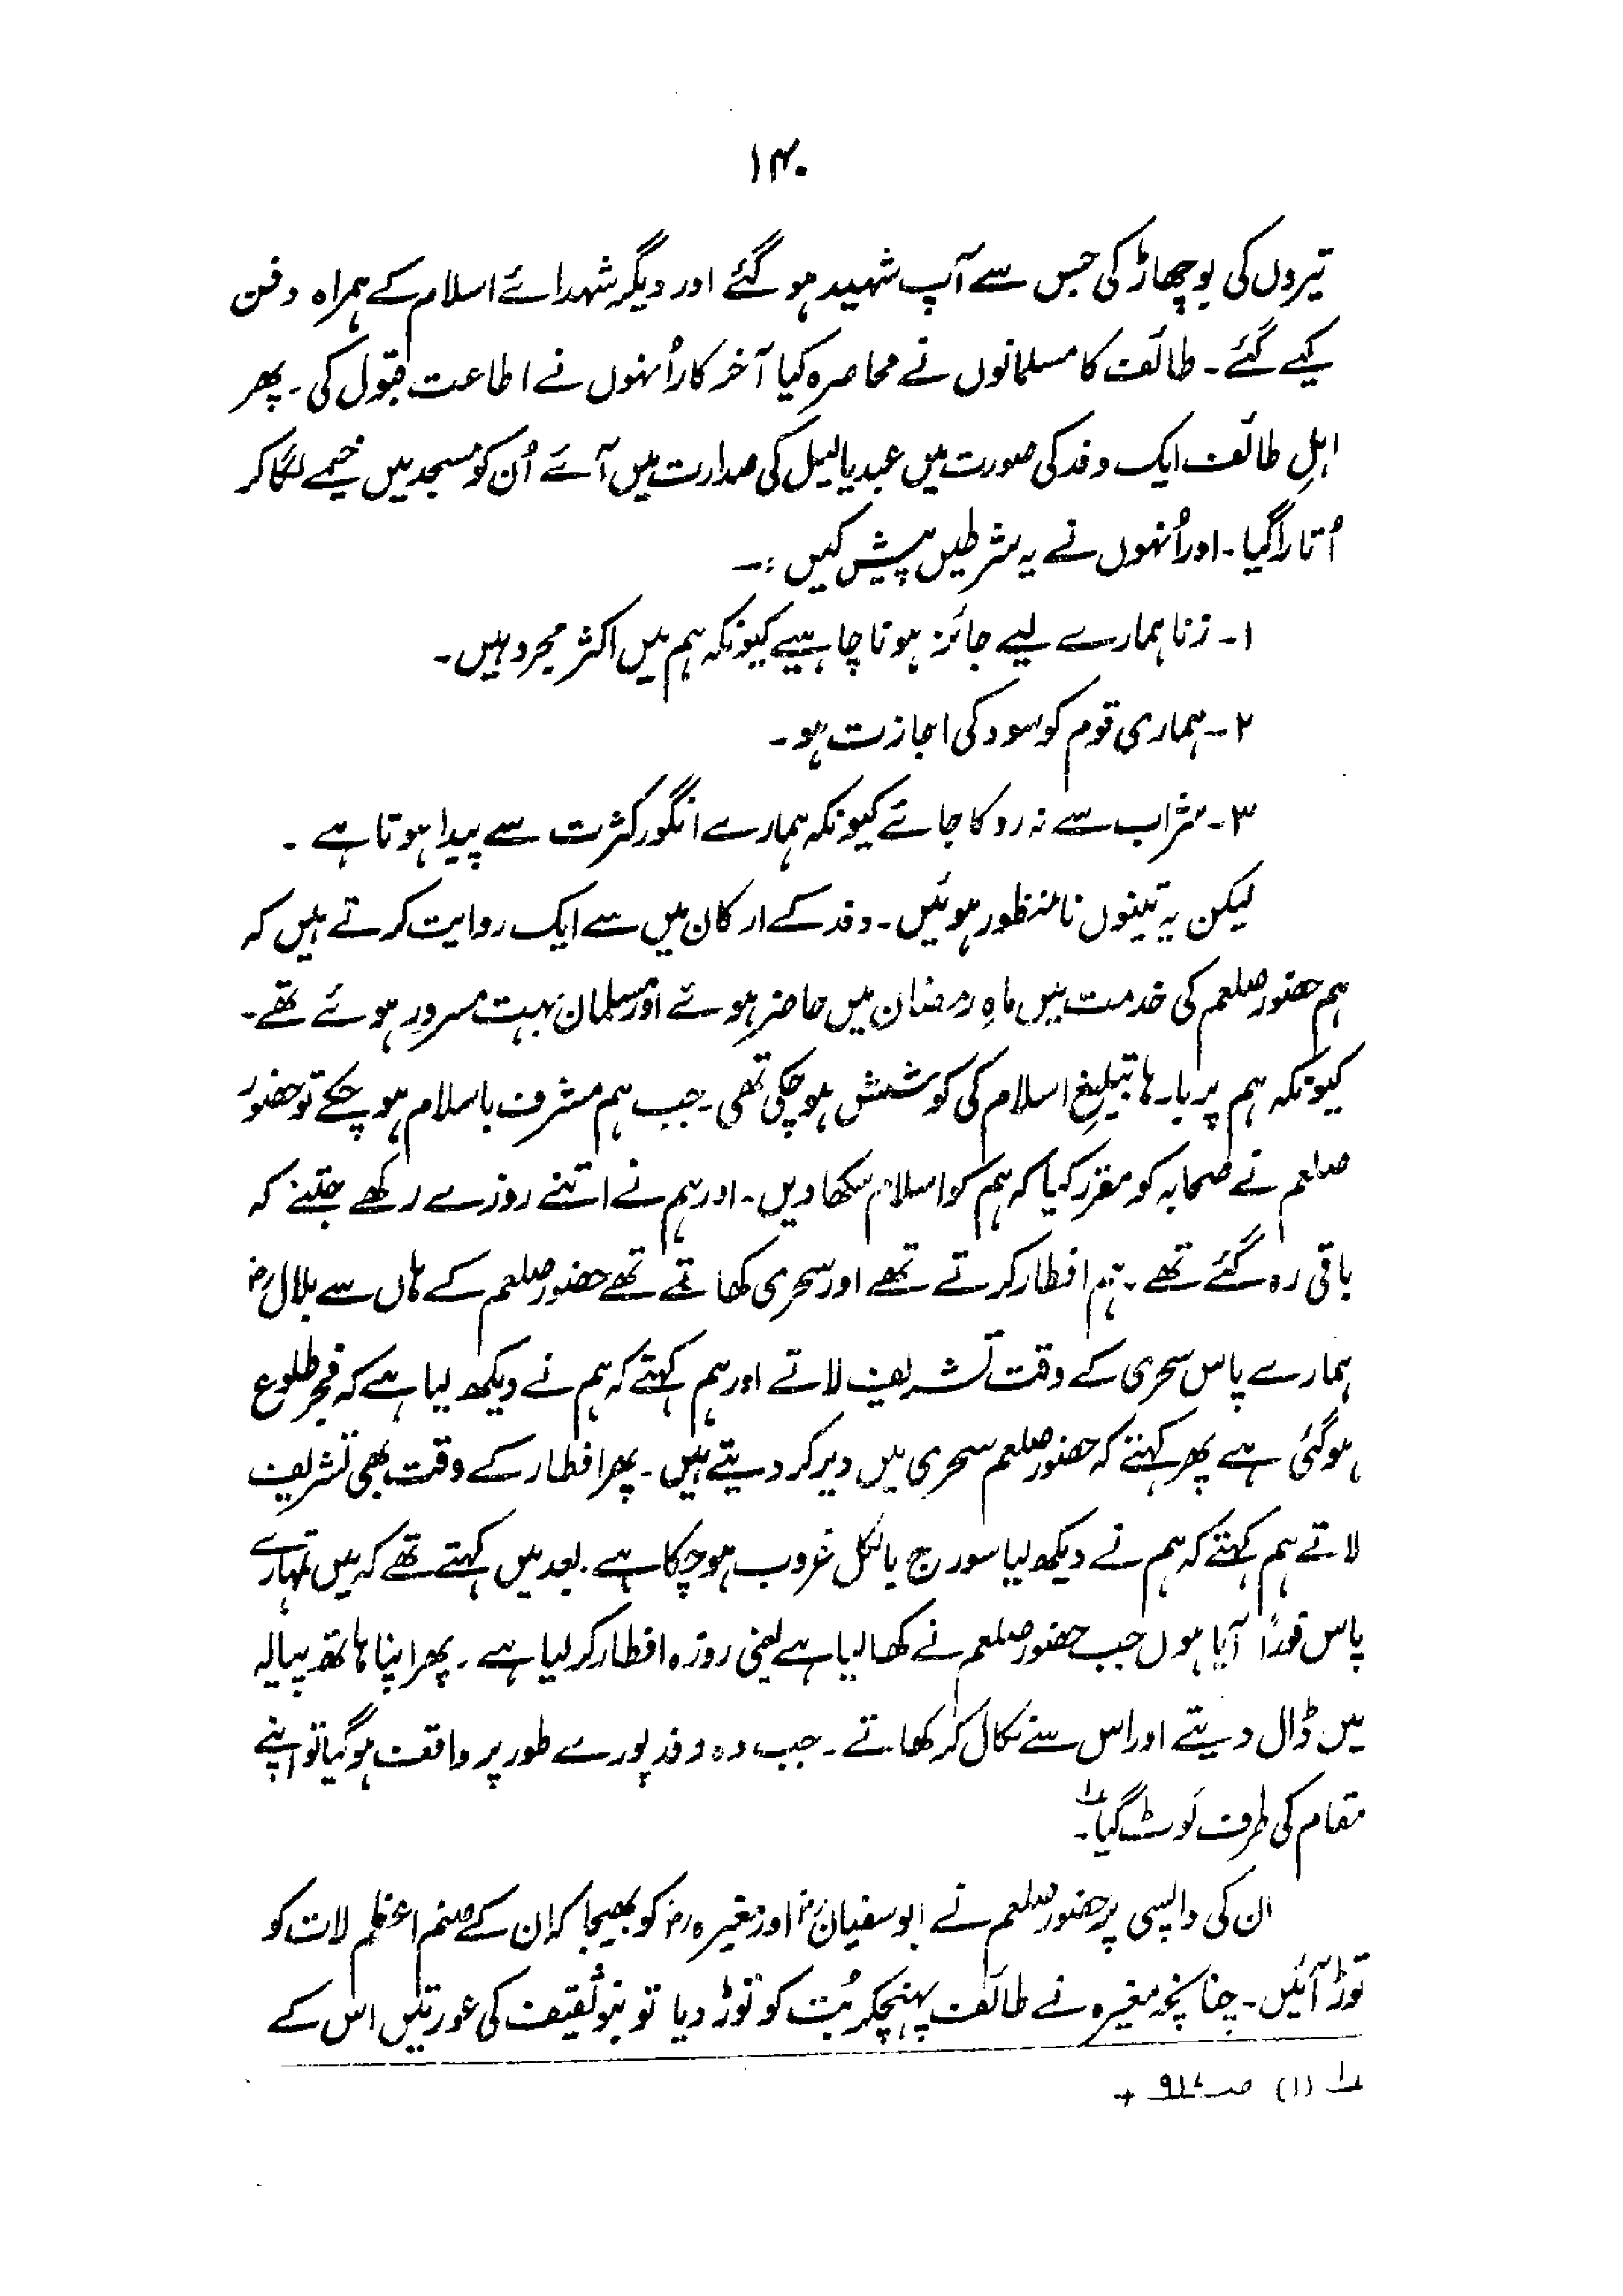 ۱۴۰
تیروں کی بوچھاڑ کی جس سے آپ شہید ہو گئے اور دیگر شہدائے اسلام کے ہمراہ دفن
کیے گئے۔ طائف کا مسلمانوں نے محاصرہ کیا آخر کار اُنہوں نے اطاعت قبول کی۔ پھر
اہلِ طائف ایک وفد کی صورت میں عبدیالیل کی صدارت میں آئے اُن کو مسجد میں خیمے لگا کر
اُتارا گیا۔ اور اُنہوں نے یہ شرطیں پیش کیں :۔
۱۔ زنا ہمارے لیے جائز ہونا چاہیے کیونکہ ہم میں اکثر مجرد ہیں۔
۲۔ ہماری قوم کو سود کی اجازت ہو۔
۳۔ شراب سے نہ روکا جائے کیونکہ ہمارے انگور کثرت سے پیدا ہوتا ہے۔
لیکن یہ تینوں نامنظور ہوئیں۔ وفد کے ارکان میں سے ایک روایت کرتے ہیں کہ
ہم حضور صلعم کی خدمت میں ماہِ رمضان میں حاضر ہوئے اور مسلمان بہت مسرور ہوئے تھے۔
کیونکہ ہم پر بارہا تبلیغِ اسلام کی کوشش ہو چکی تھی۔ جب ہم مشرف باسلام ہو چکے تو حضور
صلعم نے صحابہ کو مقرر کیا کہ ہم کو اسلام سکھا دیں۔ اور ہم نے اتنے روزے رکھے جتنے کہ
باقی رہ گئے تھے۔ ہم افطار کرتے تھے اور سحری کھاتے تھے حضور صلعم کے ہاں سے بلالؓ
ہمارے پاس سحری کے وقت تشریف لاتے اور ہم کہتے کہ ہم نے دیکھ لیا ہے کہ فجر طلوع
ہو گئی ہے پھر کہتے کہ حضور صلعم سحری میں دیر کر دیتے ہیں۔ پھر افطار کے وقت بھی تشریف
لاتے ہم کہتے کہ ہم نے دیکھ لیا سورج بالکل غروب ہو چکا ہے۔ بعد میں کہتے تھے کہ میں تمہارے
پاس فوراً آیا ہوں جب حضور صلعم نے کھا لیا ہے یعنی روزہ افطار کر لیا ہے۔ پھر اپنا ہاتھ پیالہ
میں ڈال دیتے اور اس سے نکال کر کھاتے۔ جب وہ وفد پورے طور پر واقف ہو گیا تو اپنے
مقام کی طرف لَوٹ گیا۔ؐ۱
ان کی واپسی پر حضور صلعم نے ابو سفیانؓ اور مغیرہؓ کو بھیجا کہ ان کے صنم اعظم لات کو
توڑ آئیں۔ چنانچہ مغیرہ نے طائف پہنچکر بُت کو توڑ دیا تو بنو ثقیف کی عورتیں اس کے
۱ (۱) صـ ۹۱۷ +